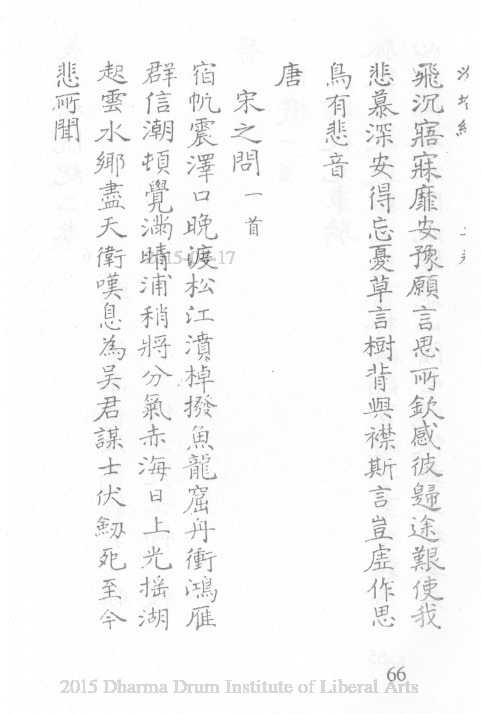 飛沉寤寐靡安豫願言思所欽感彼歸途艱使我
悲慕深安得忘憂草言樹背與襟斯言豈虛作思
鳥有悲音
唐
宋之問 一首
宿帆震澤口晚渡松江濆棹撥魚龍窟舟衝鴻雁
群信潮頓覺滿晴浦稍將分氣赤海日上光搖湖
起雲水鄉盡天衛嘆息為吳君謀士伏劒死至今
悲所聞
66
2015 Dharma Drum Institute of Liberal Arts